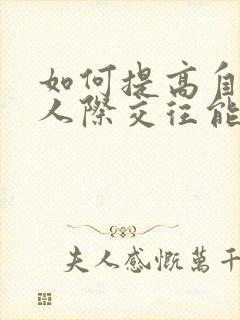 如何提高自
人际交往能
夫人感慨萬千